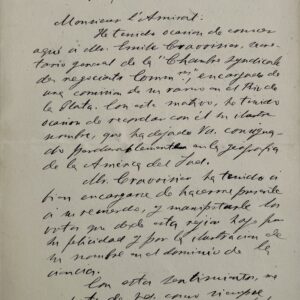 Monsieur l'Amiral:
He tenido ocasion de conocer
aquí á Mr. Emile
tario general de la "Chambre Syndicale
des negociants Comm", encargado de
una comision de su ramo en el Rio de
la Plata. Con este motivo, he tenido
ocasion de recordar con él su ilustre
nombre, que ha dejado Vd.
do en la geografía
de la América del Sud.
Mr. ha tenido á
bien encargarse de hacerme presente
á su recuerdo, y manifestarle los
votos que desde esta rejion hago por
su felicidad y por la ilustracion de
su nombre en el dominio de la
ciencia.
Con estos sentimientos, me
de Vd. como siempre